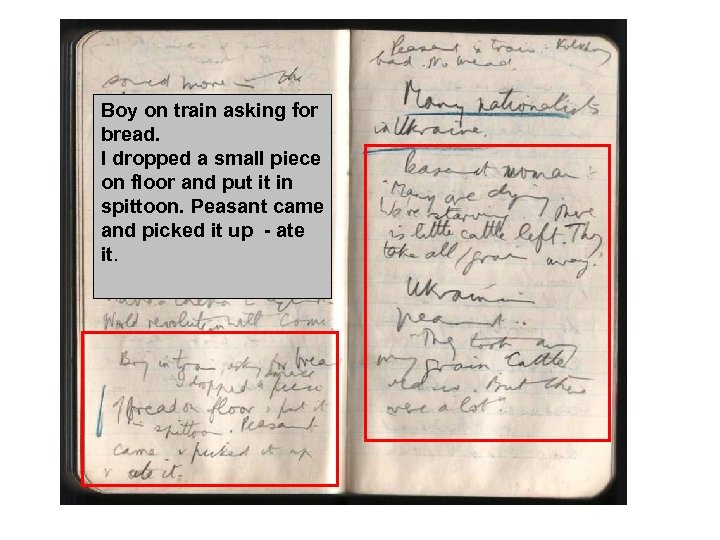 sowed more - the
Boy on train asking for
bread.
I dropped a small piece
on floor and put it in
spittoon. Peasant came
and picked it up - ate
it.
World revolution will come.
Boy in train asking for brea
dropped a piece
of bread on floor & put it
in spittoon. Peasant
came & picked it up
& ate it.
Peasant in train:
bad. No bread.
Many nationalists
in Ukraine.
Peasant woman:-
"Many are dying.
We're starving. There
is little cattle left. They
take all grain away."
Ukrainian
peasant:
"They took away
my grain. Cattle
But there
were a lot."